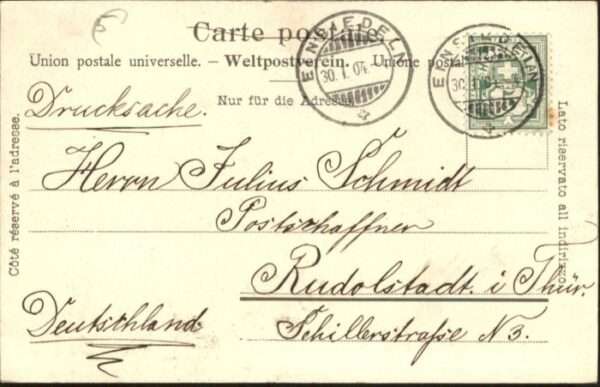 5
Carte postale
Union postale universelle. — Weltpostverein. — Unione postale
EINSIEDELN
30.I.04.
EINSIEDELN
30.I.
Drucksache.
Nur für die Adresse
Herrn Julius Schmidt
Postschaffner
Rudolstadt. i Thür.
Schillerstraße N 3.
Deutschland
Côté réservé à l'adresse.
Lato riservato all indirizzo